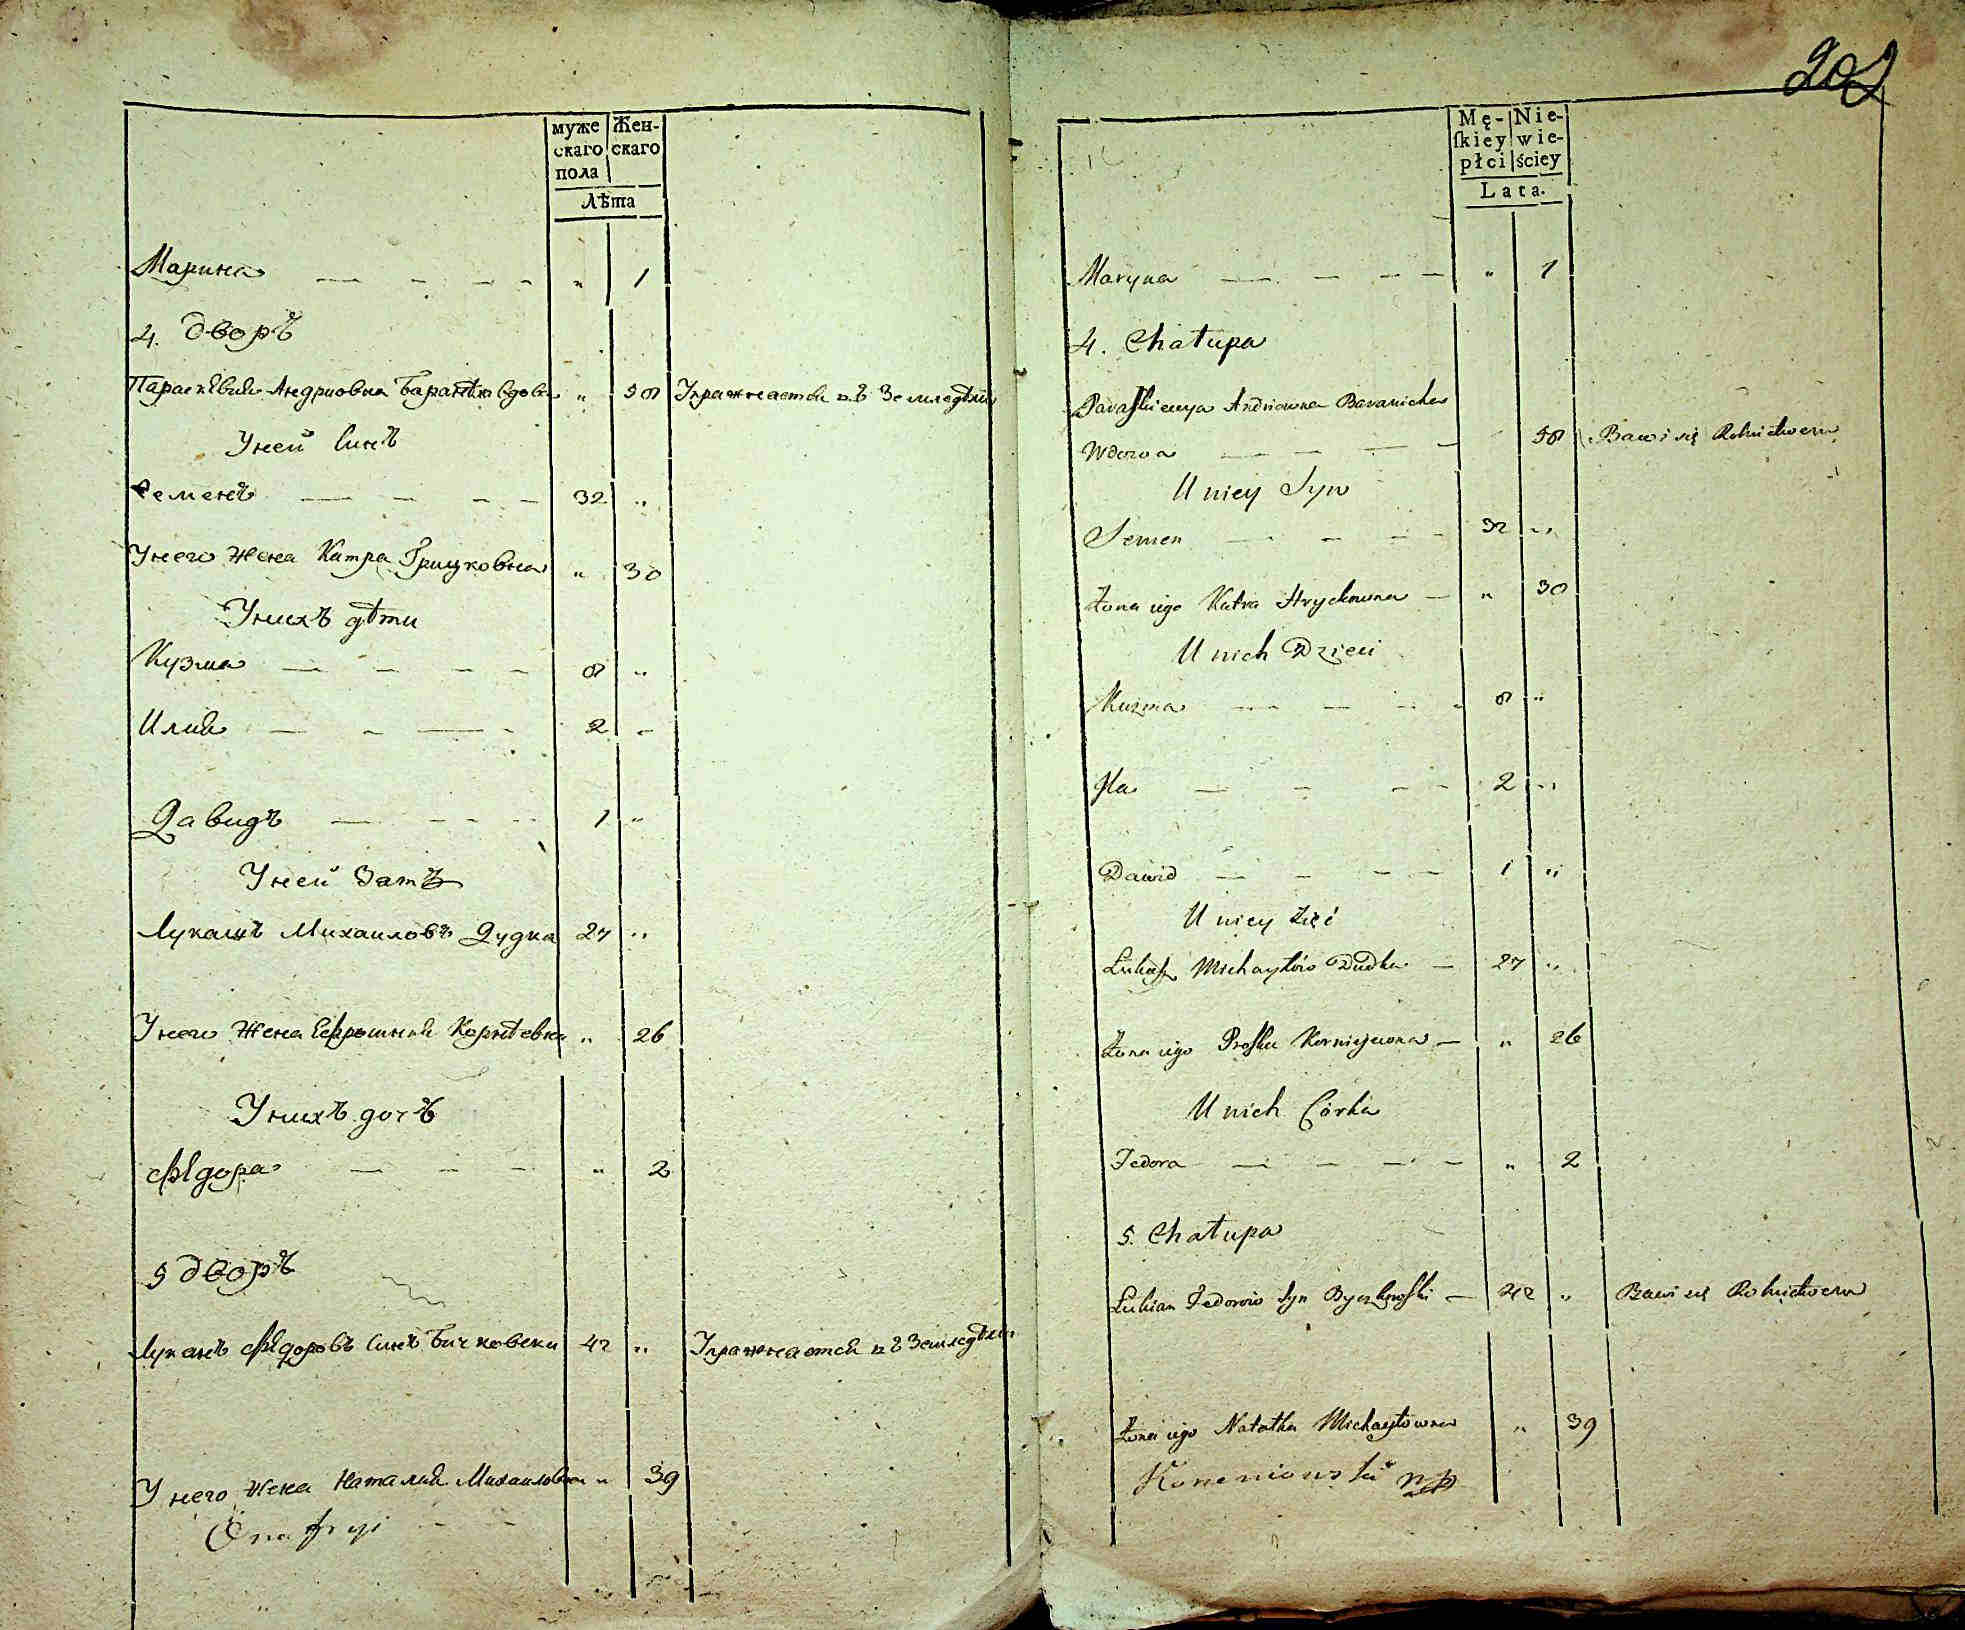 202
муже скаго пола
Жен- скаго
Лѣта
Марина — — — — " 1
4. дворъ
Параскѣвия Андриовна Баранѣха вдова " 58 Упражнается въ Земледѣлии
У ней Синъ
Семенъ — — — — 32 "
У него Жена Катра Грицковна " 30
У нихъ дѣти
Кузма — — — — 8 "
Илия — — — — 2 "
Давидъ — — — — 1 "
У ней Зать
Лукашъ Михаиловъ Дудка 27 "
У него Жена Ефрошиния Корнѣевна " 26
У нихъ дочъ
Фѣдора — — — " 2
5 дворъ
Лукянъ Фѣдоровъ Синъ Бичковски 42 " Упражнается въ Земледѣлии
У него Жена Наталия Михаиловна " 39
Onafryi — —
Mę- Nie-
ſkiey wie-
płci ściey
Lata.
Maryna — — — — " 1
4. Chałupa
Paraſkiewya Andriowna Baranicha
Wdowa — — — — 58 Bawi się Rolnictwem
U niey Syn
Semen — — — — 32 "
Żona iego Katra Hryckowna — " 30
U nich Dzieci
Kuzma — — — — 8 "
Jla — — — — 2 "
Dawid — — — — 1 "
U niey Zięć
Łukaſz Michayłów Dudka — 27 "
Żona iego Proſka Korniejowna — " 26
U nich Córka
Fedora — — — — " 2
5. Chałupa
Łukian Fedorow Syn Byczkowſki — 42 " Bawi się Rolnictwem
Żona iego Natalka Michayłowna " 39